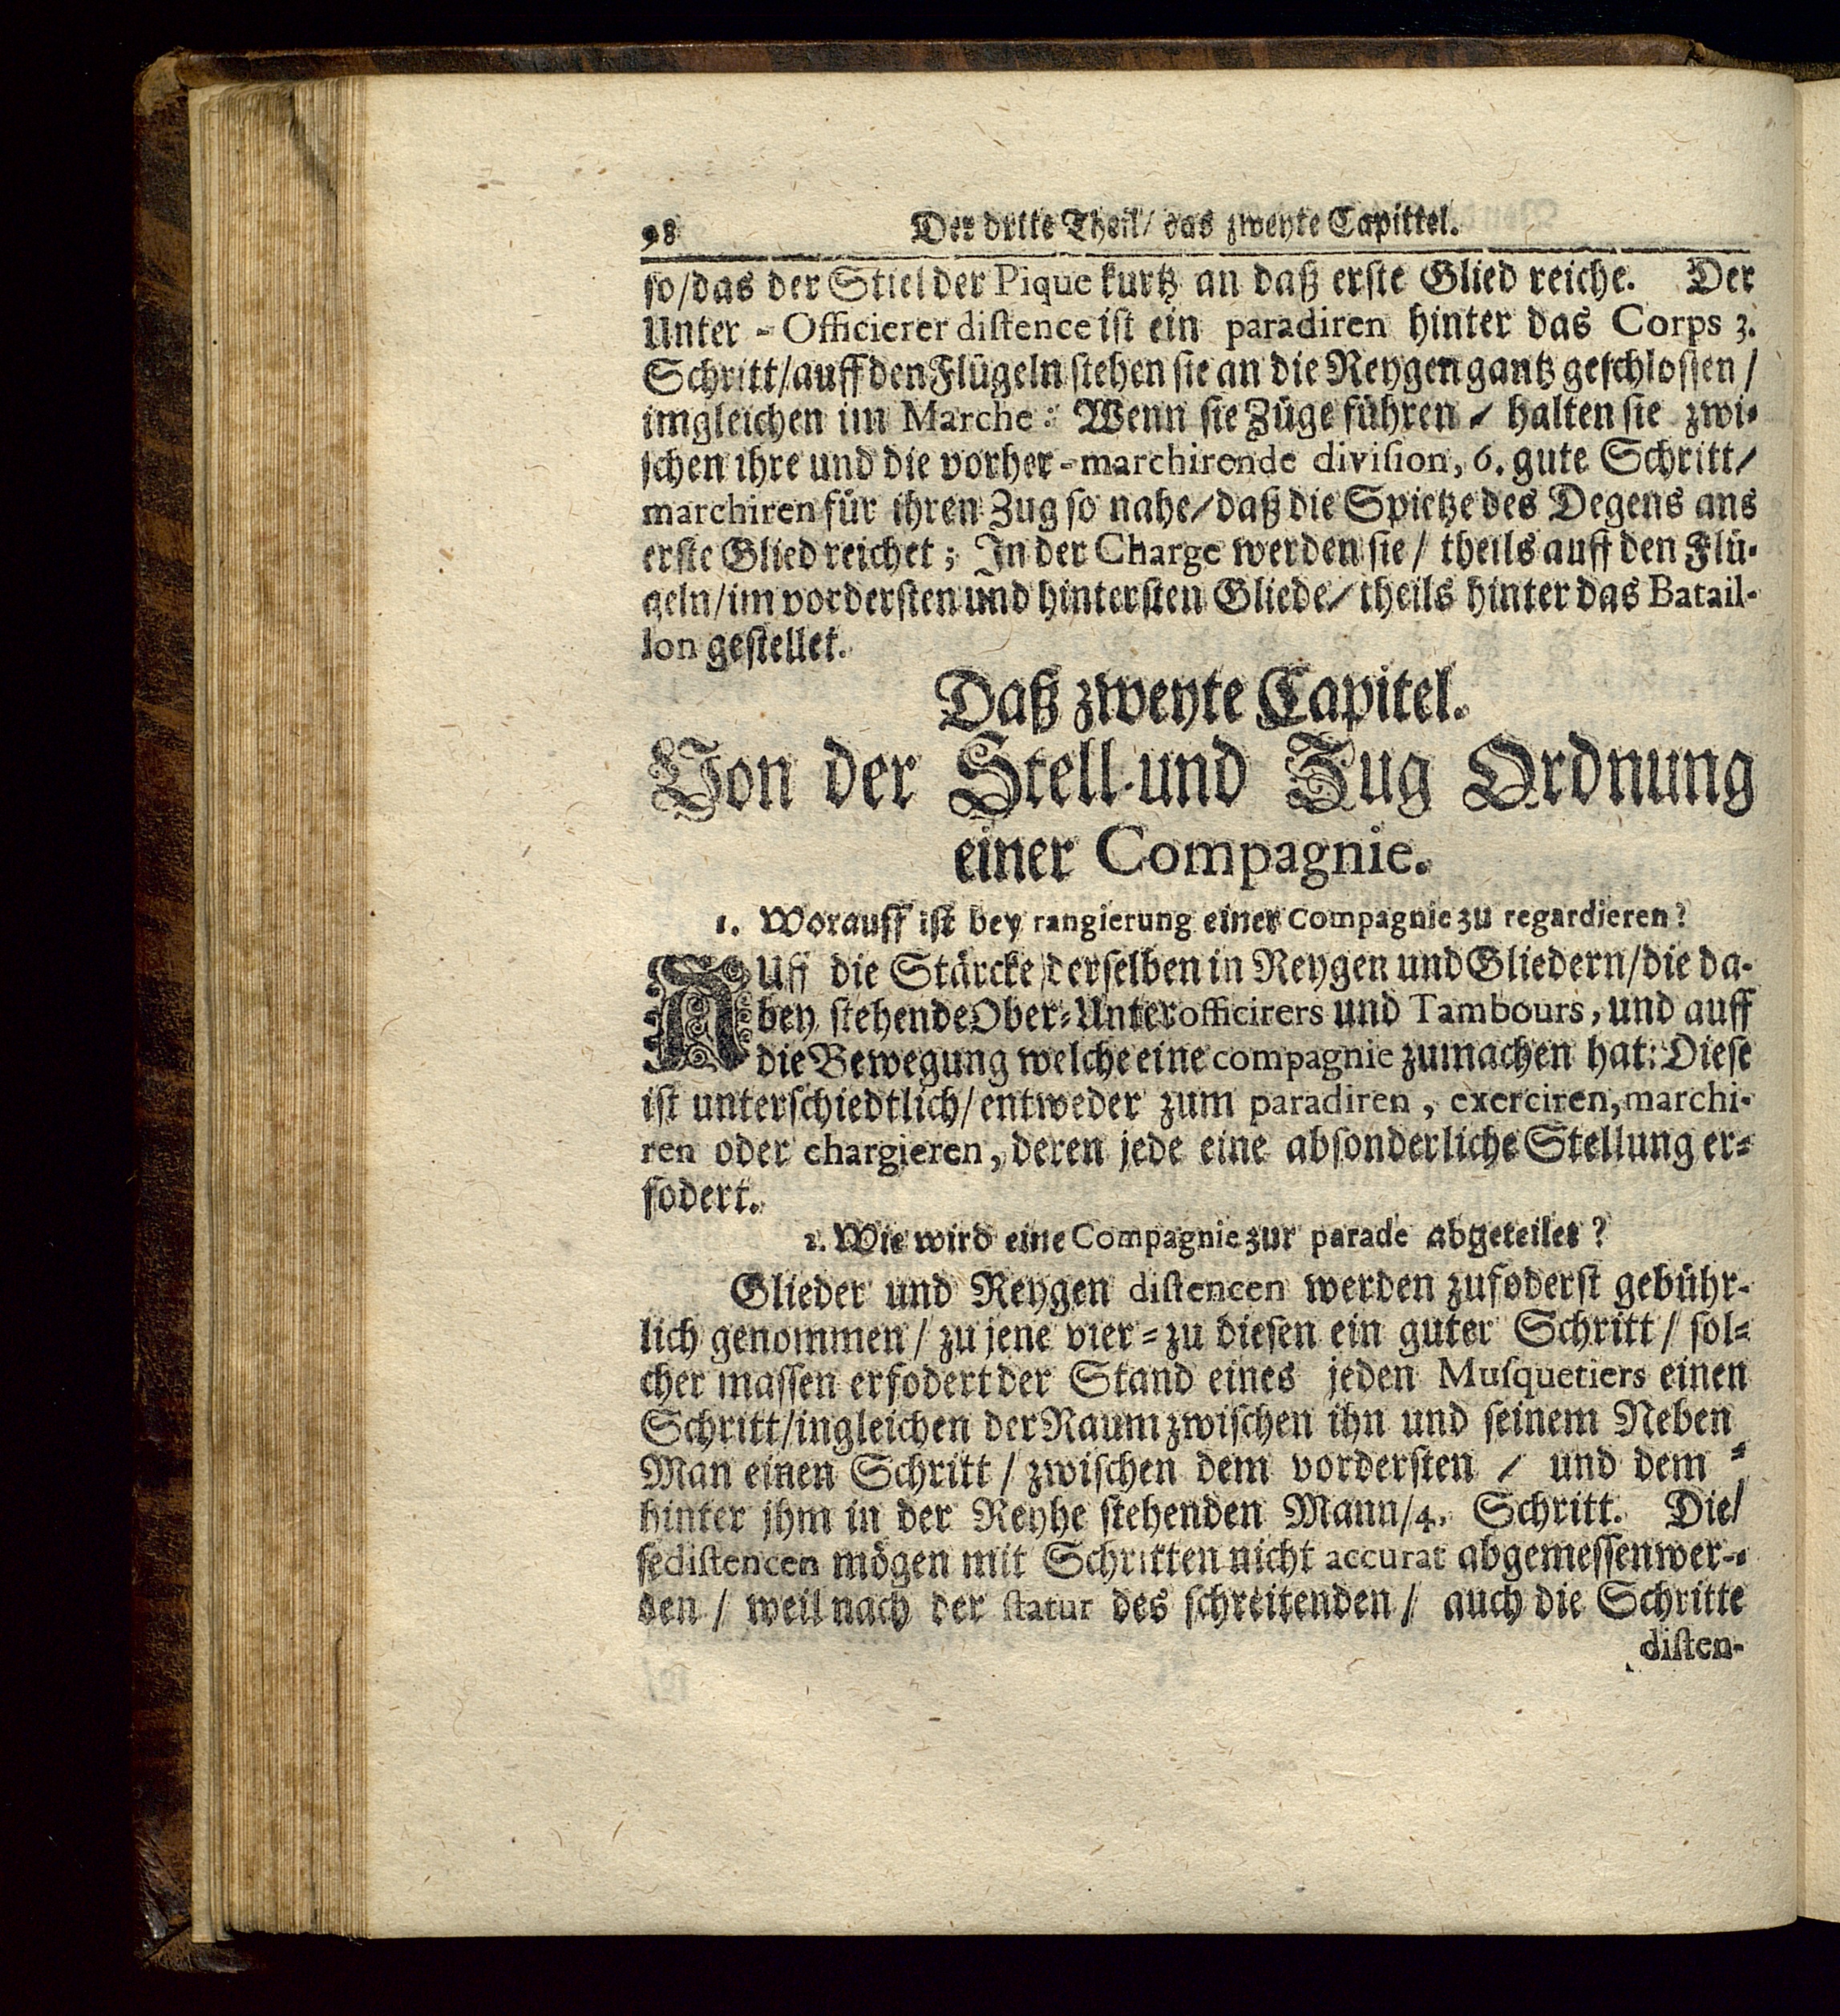 98 Der dritte Theil/ das zweyte Capittel.
so/das der Stiel der Pique kurtz an daß erste Glied reiche. Der
Unter - Officierer distence ist ein paradiren hinter das Corps 3.
Schritt/auff den Flügeln stehen sie an die Reygen gantz geschlossen/
imgleichen im Marche: Wenn sie Züge führen / halten sie zwi-
schen ihre und die vorher-marchirende division, 6. gute Schritt/
marchiren für ihren Zug so nahe/daß die Spietze des Degens ans
erste Glied reichet; In der Charge werden sie/ theils auff den Flü-
geln/im vordersten und hintersten Gliede/ theils hinter das Batail-
lon gestellet.
Daß zweyte Capitel.
Von der Stell-und Zug Ordnung
einer Compagnie.
1. Worauff ist bey rangierung einer Compagnie zu regardieren?
AUff die Stärcke derselben in Reygen und Gliedern/die da-
bey stehende Ober-Unterofficirers und Tambours, und auff
die Bewegung welche eine compagnie zumachen hat: Diese
ist unterschiedtlich/entweder zum paradiren, exerciren, marchi-
ren oder chargieren, deren jede eine absonderliche Stellung er-
fodert.
2. Wie wird eine Compagnie zur parade abgeteilet?
Glieder und Reygen distencen werden zufoderst gebühr-
lich genommen/ zu jene vier-zu diesen ein guter Schritt/ sol-
cher massen erfodert der Stand eines jeden Musquetiers einen
Schritt/ingleichen der Raum zwischen ihn und seinem Neben-
Man einen Schritt/ zwischen dem vordersten / und dem
hinter jhm in der Reyhe stehenden Mann/4. Schritt. Die/
sedistencen mögen mit Schritten nicht accurat abgemessen wer-
den/ weil nach der statur des schreitenden/ auch die Schritte
disten-